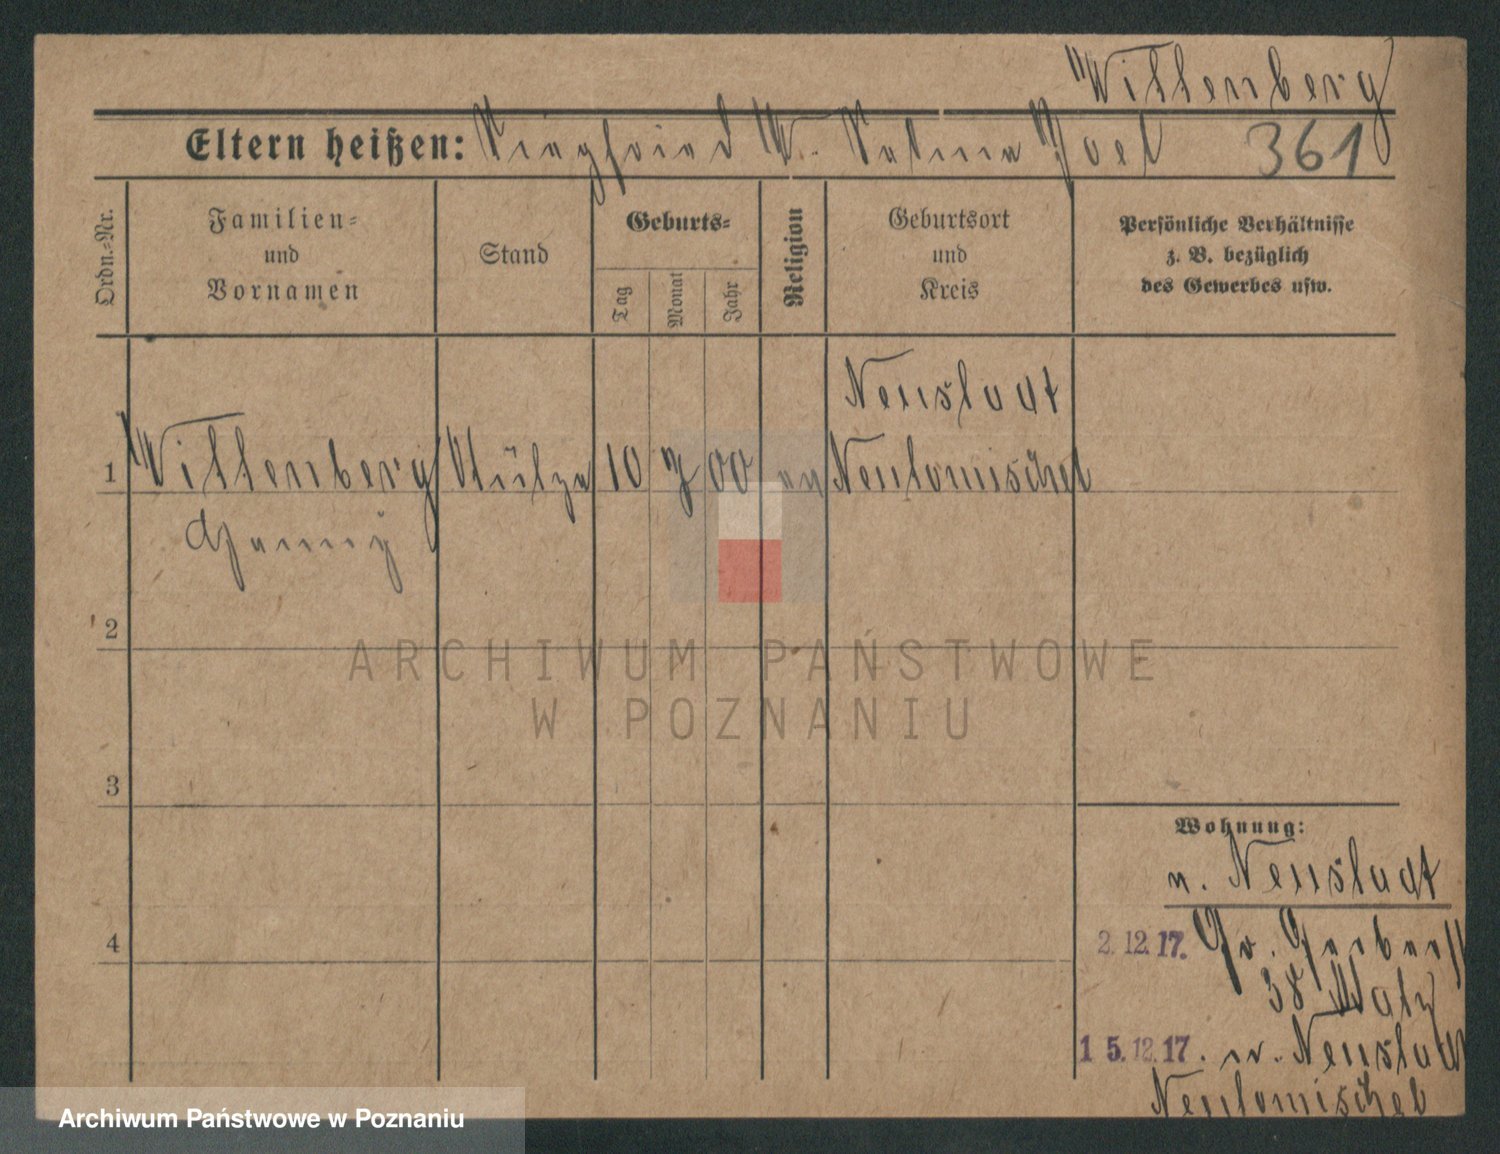 Wittenberg
Eltern heißen: Siegfried W. Selma Joel 361
Ordn.=Nr.
Familien=
und
Vornamen
Stand
Geburts=
Tag
Monat
Jahr
Religion
Geburtsort
und
Kreis
Persönliche Verhältnisse
z. B. bezüglich
des Gewerbes usw.
Neustadt
1 Wittenberg Stütze 10 7 00 Neutomischel
2
3
4
Wohnung:
v. Neustadt
2. 12. 17. Gr. Gerberst
38
15. 12. 17. n. Neustadt
Neutomischel
ARCHIWUM PAŃSTWOWE
W POZNANIU
Archiwum Państwowe w Poznaniu